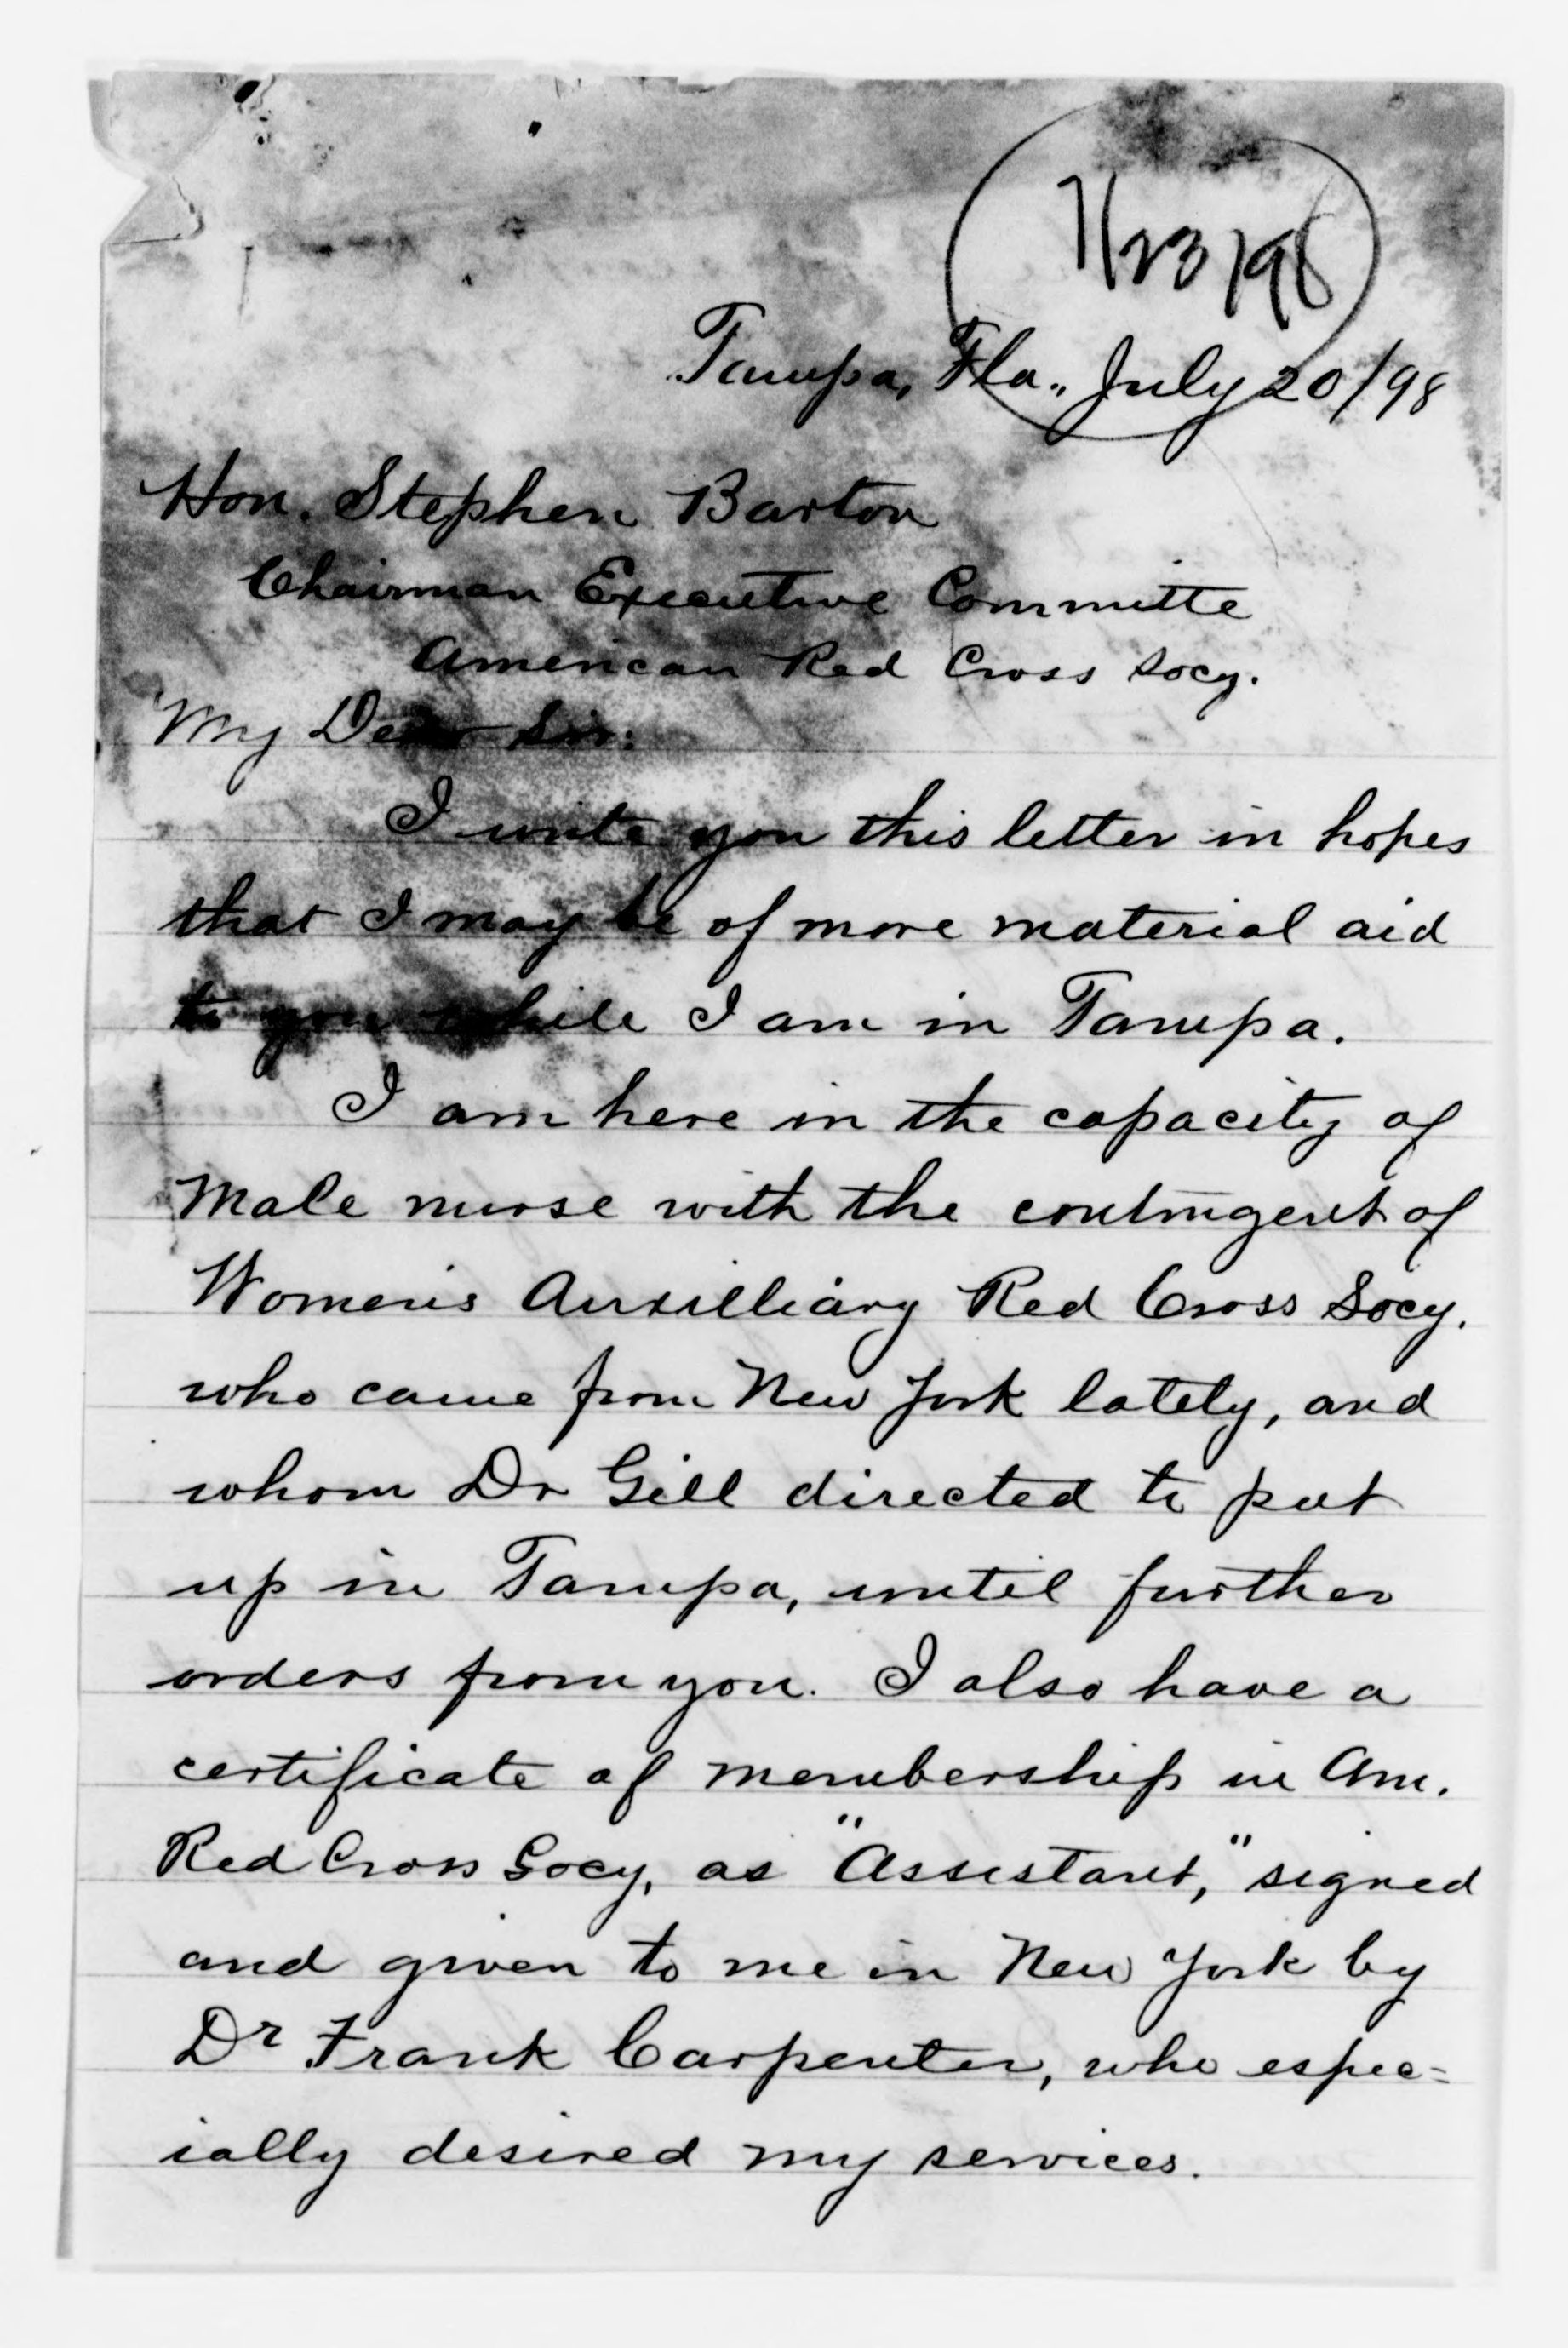 7/23/98
Tampa, Fla., July 20/98
Hon. Stephen Barton
Chairman Executive Committe
American Red Cross Socy.
My Dear Sir:
I write you this letter in hopes
that I may be of more material aid
to you while I am in Tampa.
I am here in the capacity of
Male nurse with the contingent of
Women's Auxilliary Red Cross Socy.
who came from New York lately, and
whom Dr Gill directed to put
up in Tampa, until further
orders from you. I also have a
certificate of membership in Am.
Red Cross Socy, as "Assistant," signed
and given to me in New York by
Dr Frank Carpenter, who espec=
ially desired my services.